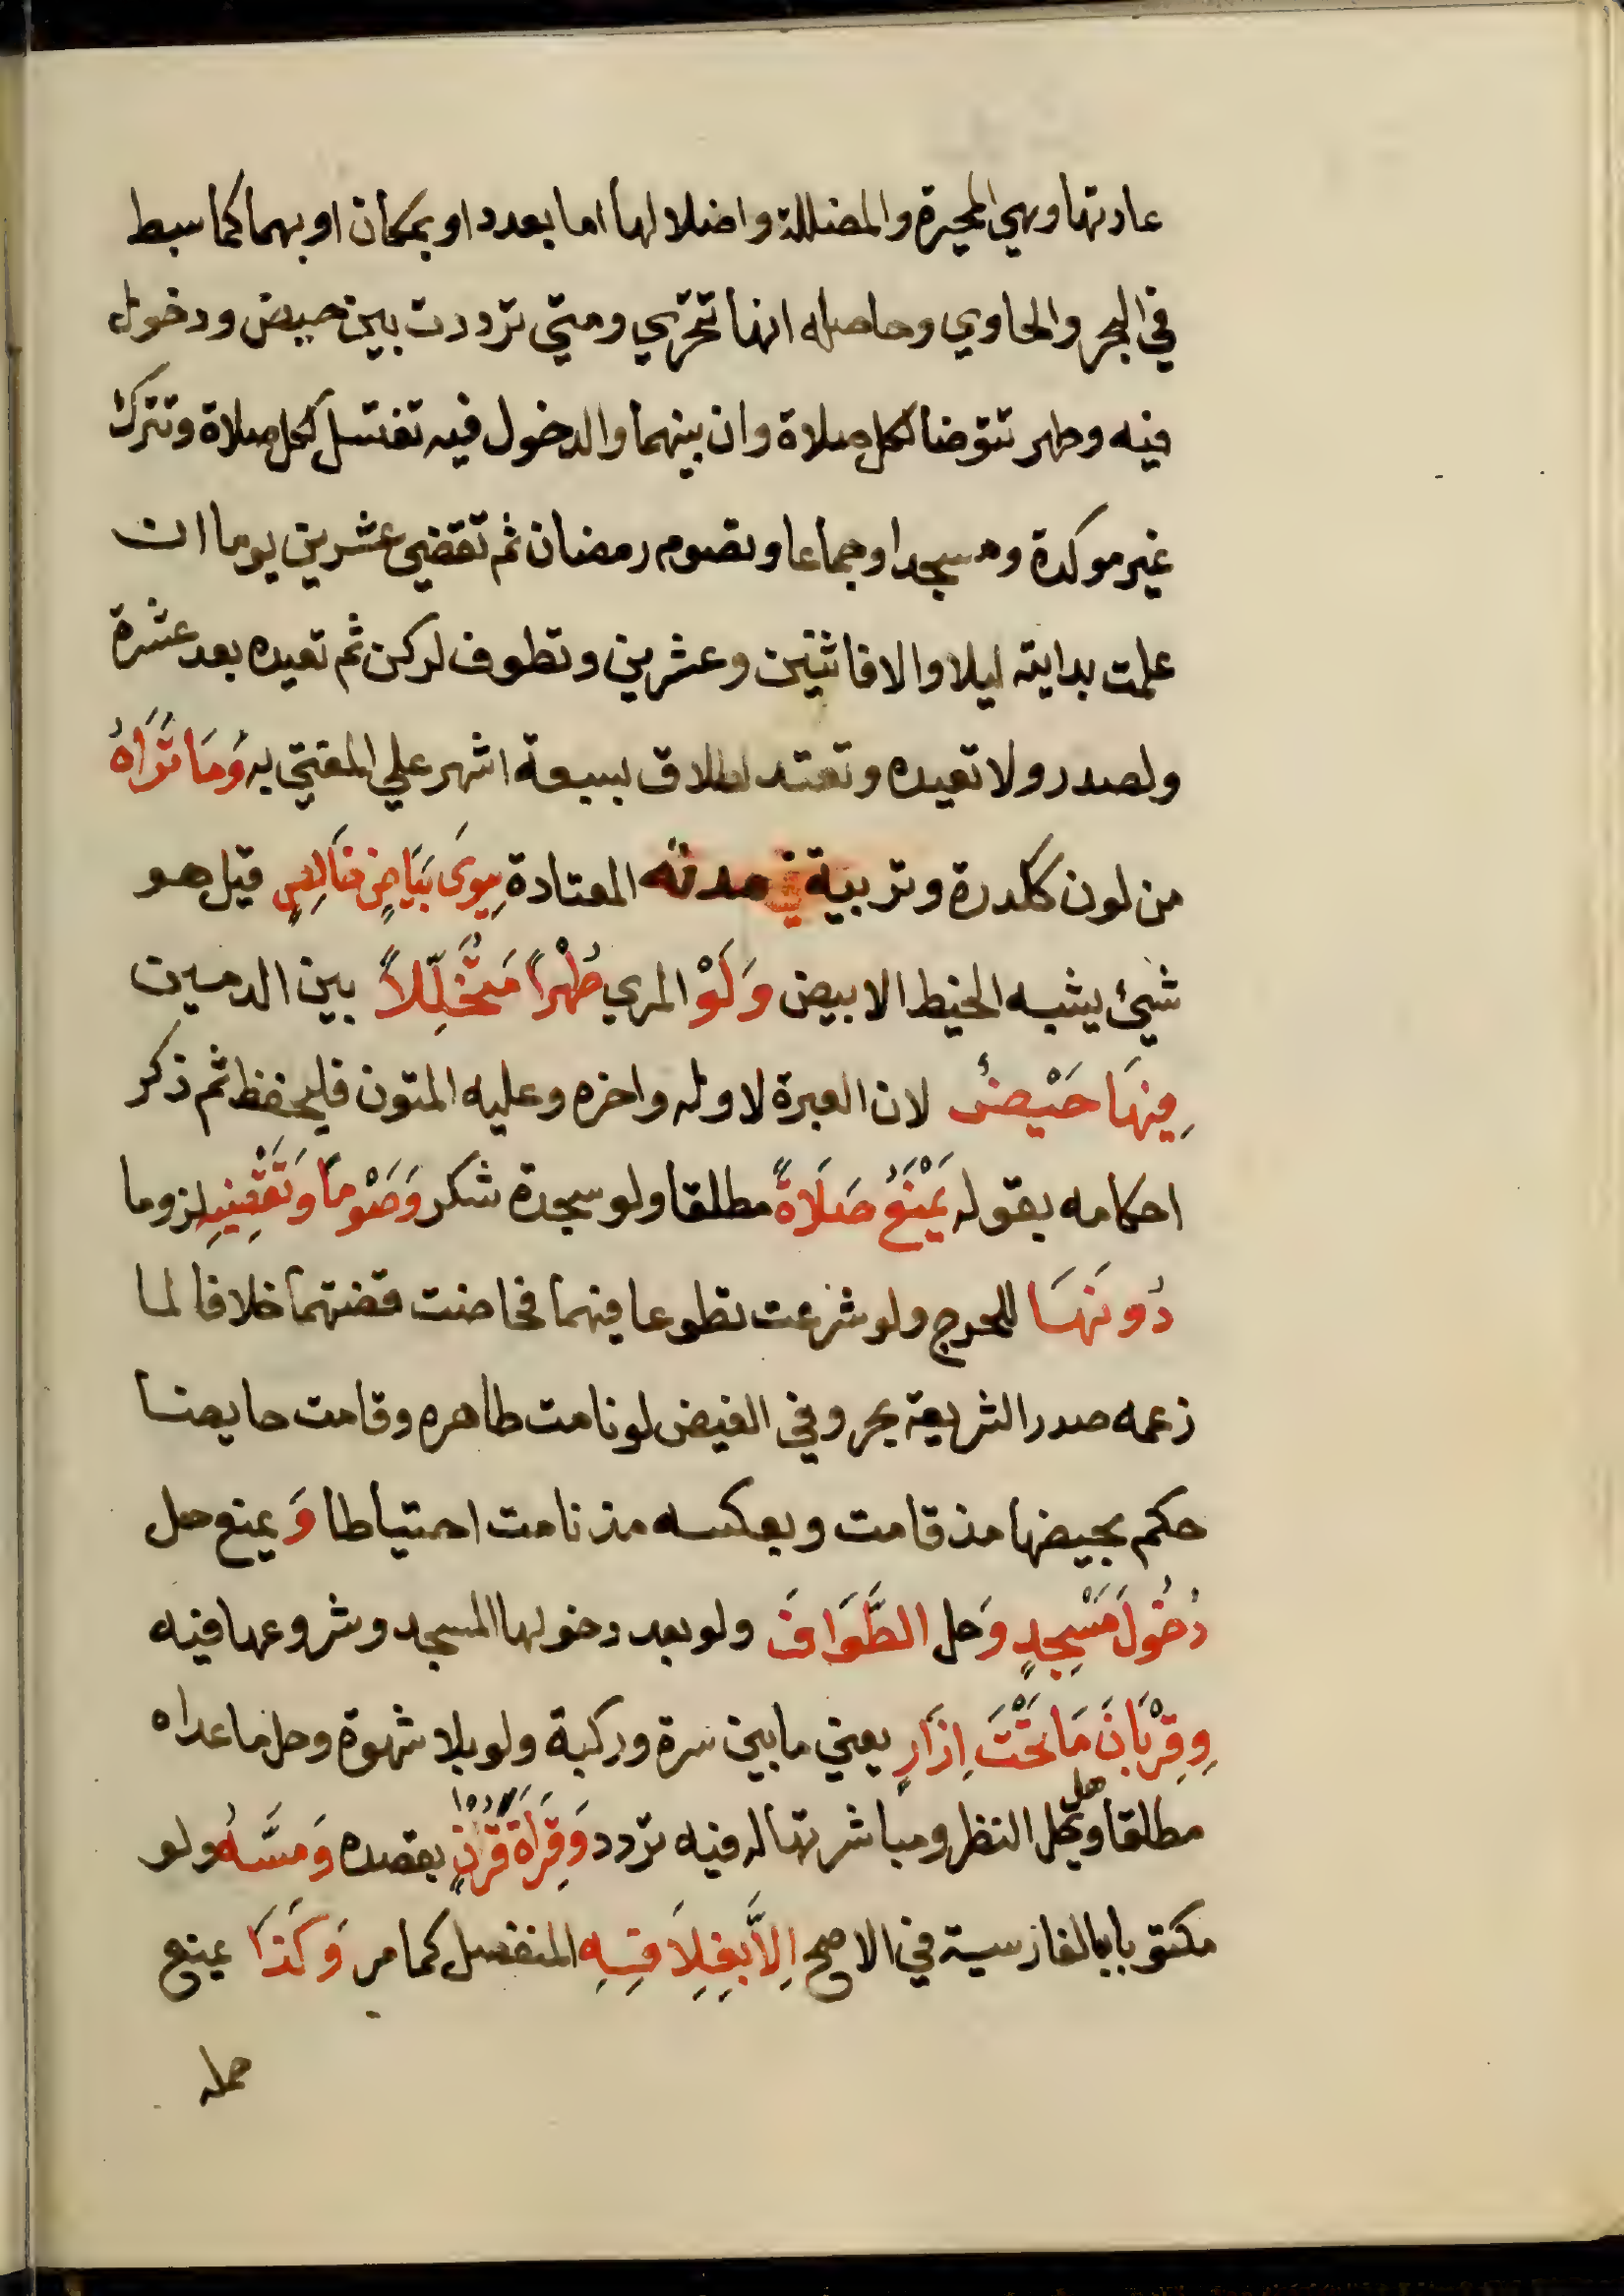 عادتها وهي المحيرة والمضللة واضلالها اما بعدد او بمكان او بهما كما سبط
في البحر والحاوي وحاصله انها تتحري ومتي ترددت بين حيض ودخول
فيه وطهر تتوضا لكل صلاة وان بينهما والدخول فيه تغتسل لكل صلاة وتترك
غير موكدة ومسجدا وجماعا وتصوم رمضان ثم تقضي عشرين يوما ان
علمت بدايته ليلا والا فاثنين وعشرين وتطوف لركن ثم تعيده بعد عشرة
ولصدر ولا تعيده وتعتد لطلاق بسبعة اشهر علي المفتي به وَمَا تَرَاهُ
من لون ككدرة وتربية في مدته المعتادة سِوَى بَيَاضٍ خَالِصٍ قيل هو
شيئ يشبه الخيط الابيض وَلَوْ المري طُهْراً مُتَخَلِّلاً بين الدمين
فِيهَا حَيْضٌ لان العبرة لاوله واخره وعليه المتون فليحفظ ثم ذكر
احكامه بقوله يَمْنَعُ صَلَاةً مطلقا ولو سجدة شكر وَصَوْماً وَتَقْضِيهِ لزوما
دُونَهَا للحرج ولو شرعت تطوعا فيهما فحاضت قضتهما خلافا لما
زعمه صدر الشريعة بحر وفي الفيض لو نامت طاهره وقامت حايضا
حكم بحيضها مذ قامت وبعكسه مذ نامت احتياطا وَ يمنع حل
دُخُولَ مَسْجِدٍ وَحل الطَّوَافَ ولو بعد دخولها المسجد وشروعها فيه
وِقِرْبَانَ مَا تَحْتَ اِزَارٍ يعني ما بين سرة وركبة ولو بلا شهوة وحل ما عداه
مطلقا وهل يحل النظر ومباشرتها له فيه تردد وَقِرَاةَ قُرْانٍ بقصده وَمَسَّهُ ولو
مكتوبا بالفارسية في الاصح اِلاَّ بِغِلَافِهِ المنفصل كما مر وَكَذَا يمنع
حمله